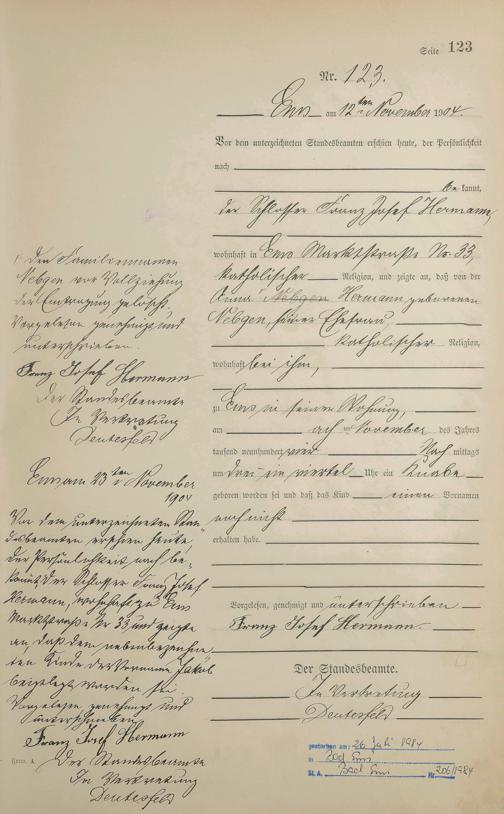 Seite 123
Nr. 123.
Ems am 12ten November 1904.
Vor dem unterzeichneten Standesbeamten erschien heute, der Persönlichkeit
nach
bekannt,
der Schlosser Franz Josef Hermann,
wohnhaft in Ems Marktstraße Nr. 33,
katholischer Religion, und zeigte an, daß von der
Anna Nebgen Hermann geborenen
Nebgen, seiner Ehefrau,
katholischer Religion,
wohnhaft bei ihm,
zu Ems in seiner Wohnung,
am November des Jahres
tausend neunhundert vier Nachmittags
um drei ein viertel Uhr ein Knabe
geboren worden sei und daß das Kind einen Vornamen
noch nicht
erhalten habe.
Vorgelesen, genehmigt und unterschrieben
Franz Josef Hermann.
Der Standesbeamte.
In Vertretung
Deutesfeld
gestorben am: 26. Juli 1984
in Bad Ems
St. A. Bad Ems Nr. 206/1984
Den Familiennamen
Nebgen vor Vollziehung
der Eintragung gelöscht.
Vorgelesen genehmigt und
unterschrieben
Franz Josef Hermann
Der Standesbeamte
In Vertretung
Deutesfeld
Ems am 23ten November
1904
Vor dem unterzeichneten Stan-
desbeamten erschien heute
der Persönlichkeit nach be-
kannt, der Schlosser Franz Josef
Hermann, wohnhaft zu Ems
Marktstraße Nr 33 und zeigte
an, daß dem nebenbezeichne-
ten Kinde der Vorname Jakob
beigelegt worden sei.
Vorgelesen genehmigt und
unterschrieben
Franz Josef Hermann
Der Standesbeamte
In Vertretung
Deutesfeld
Form. A.